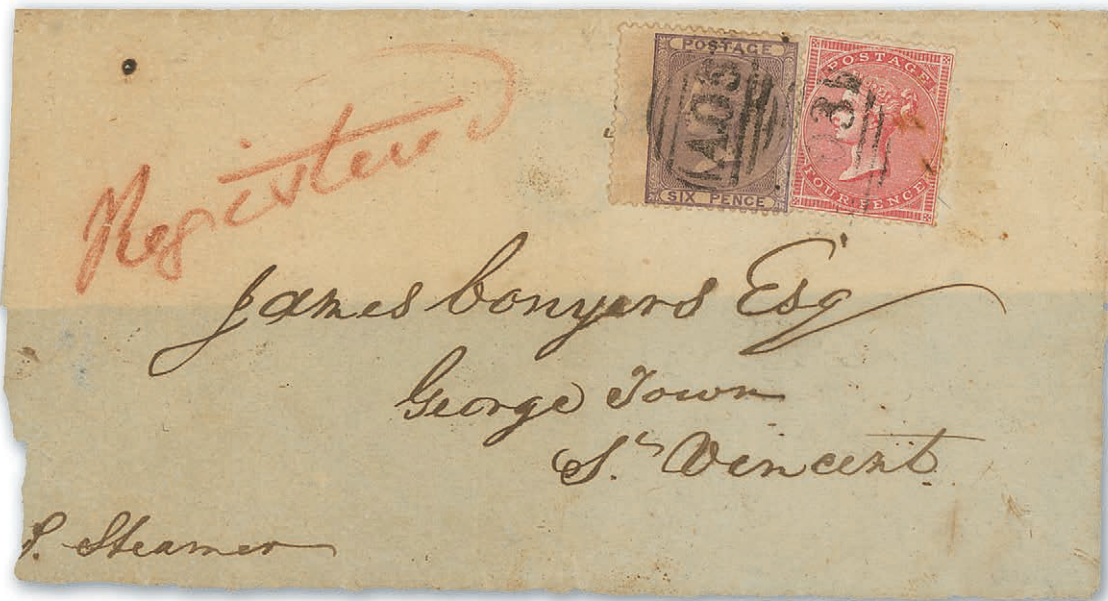 Registered
POSTAGE
SIX PENCE
POSTAGE
FOUR PENCE
A03
03
James Conyers Esq
George Town
St Vincent
P. Steamer